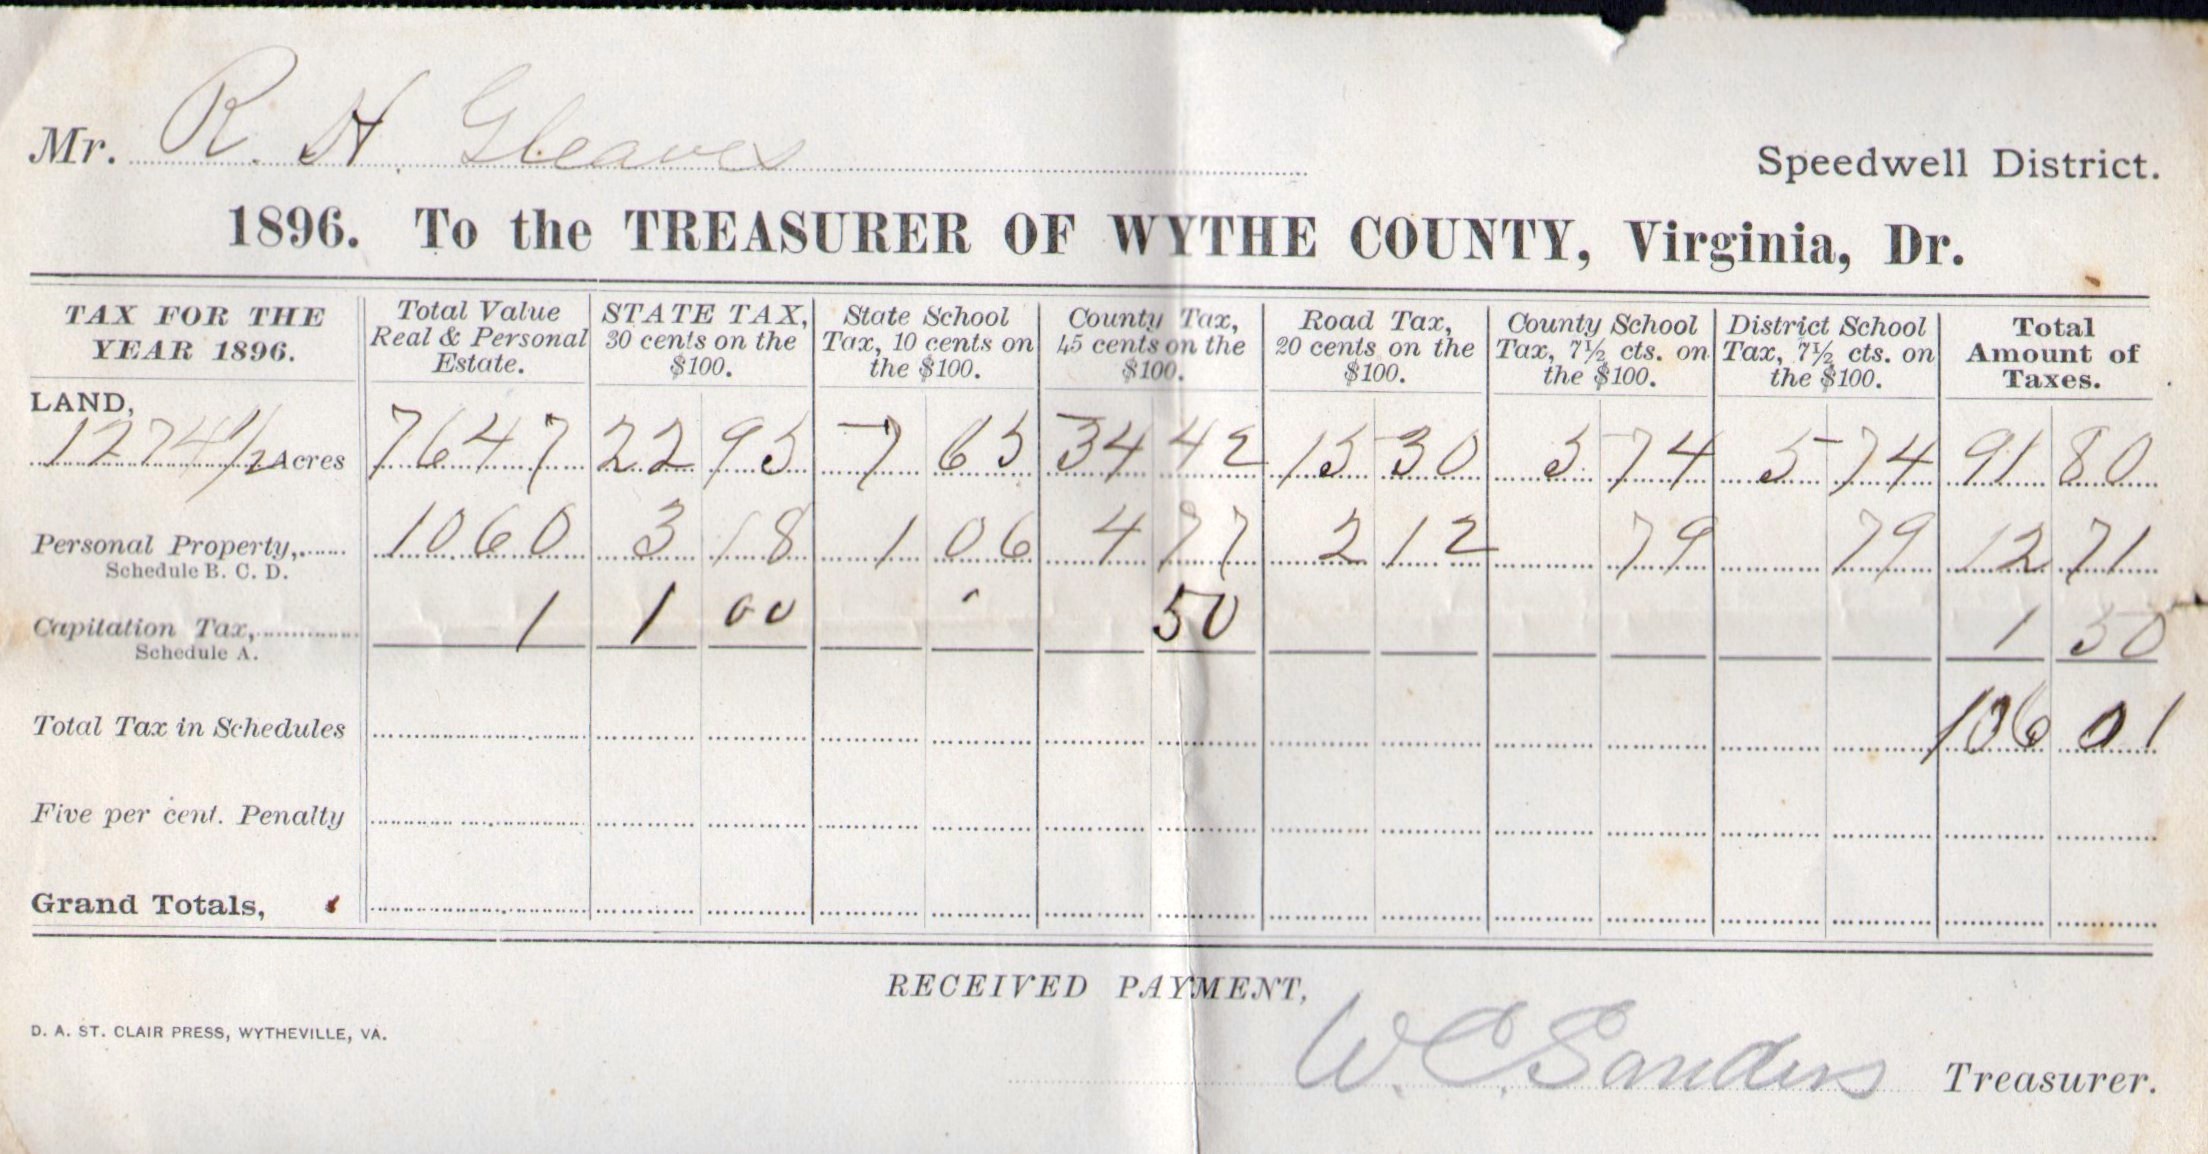 Mr. R. H. Gleaves
Speedwell District.
1896. To the TREASURER OF WYTHE COUNTY, Virginia, Dr.
TAX FOR THE YEAR 1896. Total Value Real & Personal Estate. STATE TAX, 30 cents on the $100. State School Tax, 10 cents on the $100. County Tax, 45 cents on the $100. Road Tax, 20 cents on the $100. County School Tax, 7½ cts. on the $100. District School Tax, 7½ cts. on the $100. Total Amount of Taxes.
LAND,
1274 1/2 Acres 7647 22 95 7 65 34 42 15 30 5 74 5 74 91 80
Personal Property, 1060 3 18 1 06 4 77 2 12 79 79 12 71
Schedule B. C. D.
Capitation Tax, 1 1 00 50 1 50
Schedule A.
Total Tax in Schedules 106 01
Five per cent. Penalty
Grand Totals,
RECEIVED PAYMENT,
D. A. ST. CLAIR PRESS, WYTHEVILLE, VA.
W. C. Sanders Treasurer.